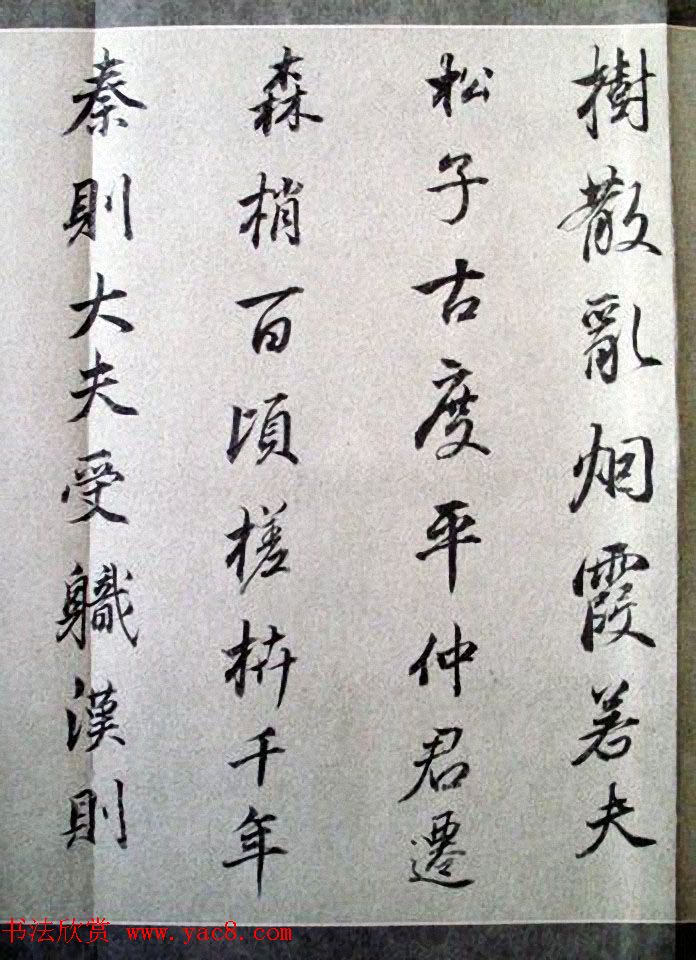 樹散亂烟霞若夫
松子古度平仲君遷
森梢百頃槎枿千年
秦則大夫受職漢則
书法欣赏 www.yac8.com